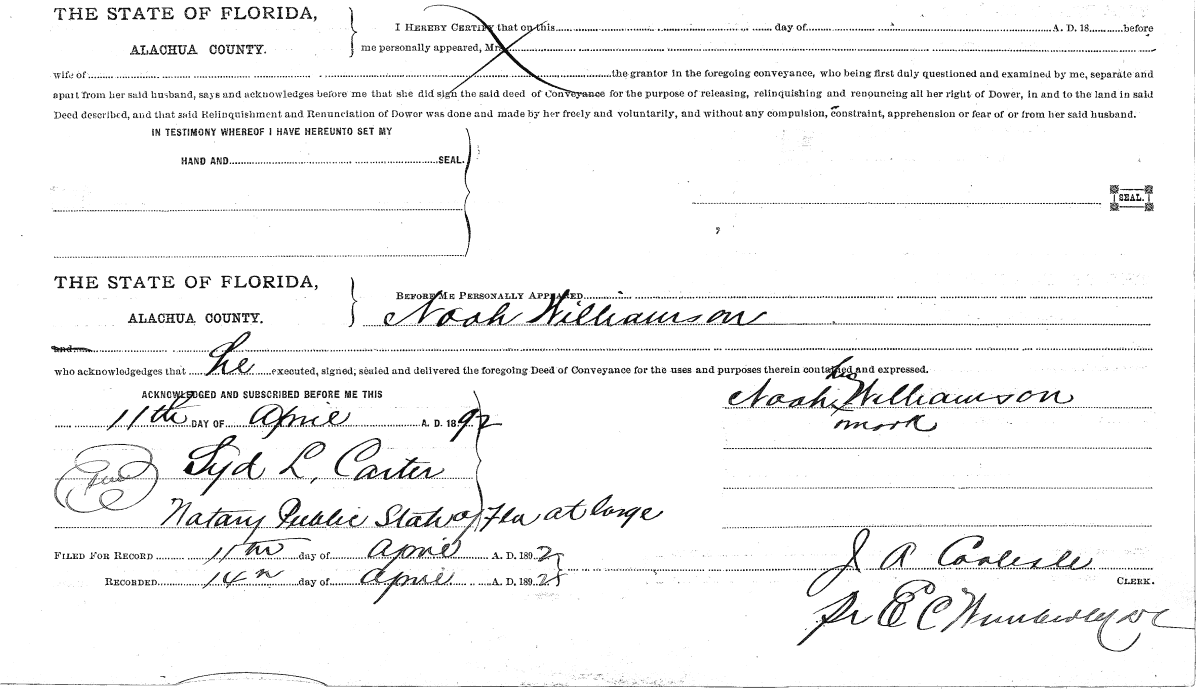 THE STATE OF FLORIDA,
ALACHUA COUNTY.
I HEREBY CERTIFY that on this day of A. D. 18 before
me personally appeared, Mrs.
wife of the grantor in the foregoing conveyance, who being first duly questioned and examined by me, separate and
apart from her said husband, says and acknowledges before me that she did sign the said deed of Conveyance for the purpose of releasing, relinquishing and renouncing all her right of Dower, in and to the land in said
Deed described, and that said Relinquishment and Renunciation of Dower was done and made by her freely and voluntarily, and without any compulsion, constraint, apprehension or fear of or from her said husband.
IN TESTIMONY WHEREOF I HAVE HEREUNTO SET MY
HAND AND SEAL.
SEAL.
THE STATE OF FLORIDA,
ALACHUA COUNTY.
BEFORE ME PERSONALLY APPEARED
Noah Williamson
and
who acknowledgedges that he executed, signed; sealed and delivered the foregoing Deed of Conveyance for the uses and purposes therein contained and expressed.
ACKNOWLEDGED AND SUBSCRIBED BEFORE ME THIS
11th DAY OF April A. D. 1892
his
Noah Williamson
mark
Syd L. Carter
Notary Public State of Fla at large
FILED FOR RECORD 11th day of April A. D. 1892
RECORDED 14th day of April A. D. 1892
J A Carlisle
CLERK.
pr E C Wimberly DC